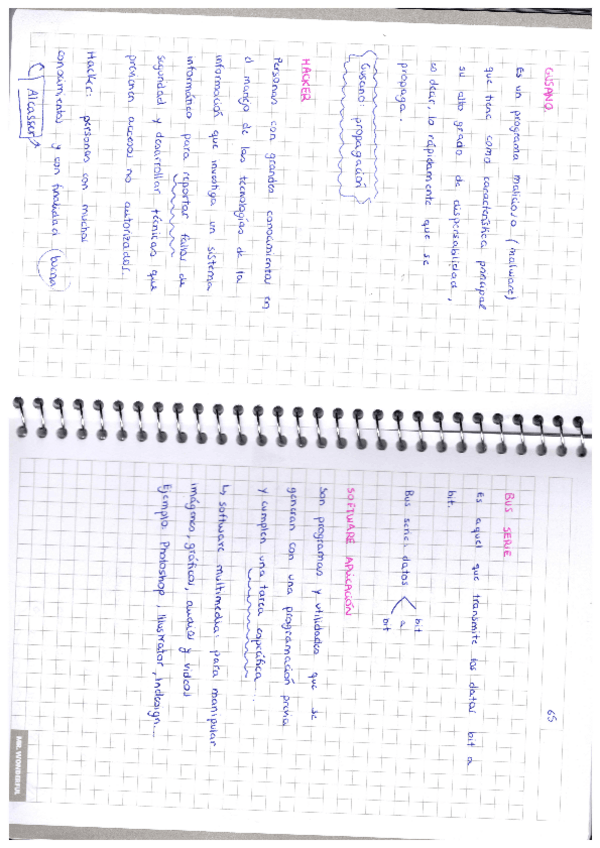 GUSANO
Es un programa malicioso (malware)
que tiene como característica principal
su alto grado de dispersabilidad,
es decir, lo rápidamente que se
propaga.
Gusano: propagación
HACKER
Personas con grandes conocimientos en
el manejo de las tecnologías de la
información que investiga un sistema
informático para reportar fallos de
seguridad y desarrollar técnicas que
previenen accesos no autorizados.
Hacker: personas con muchos
conocimientos y con finalidad buena
Alcasser
65
BUS SERIE
Es aquel que transmite los datos bit a
bit.
Bus serie: datos bit
a
bit
SOFTWARE APLICACIÓN
Son programas y utilidades que se
generan con una programación previa
y cumplen una tarea específica.
↳ software multimedia: para manipular
imágenes, gráficos, audios y videos
Ejemplo: Photoshop, Illustrator, Indesign...
MR. WONDERFUL